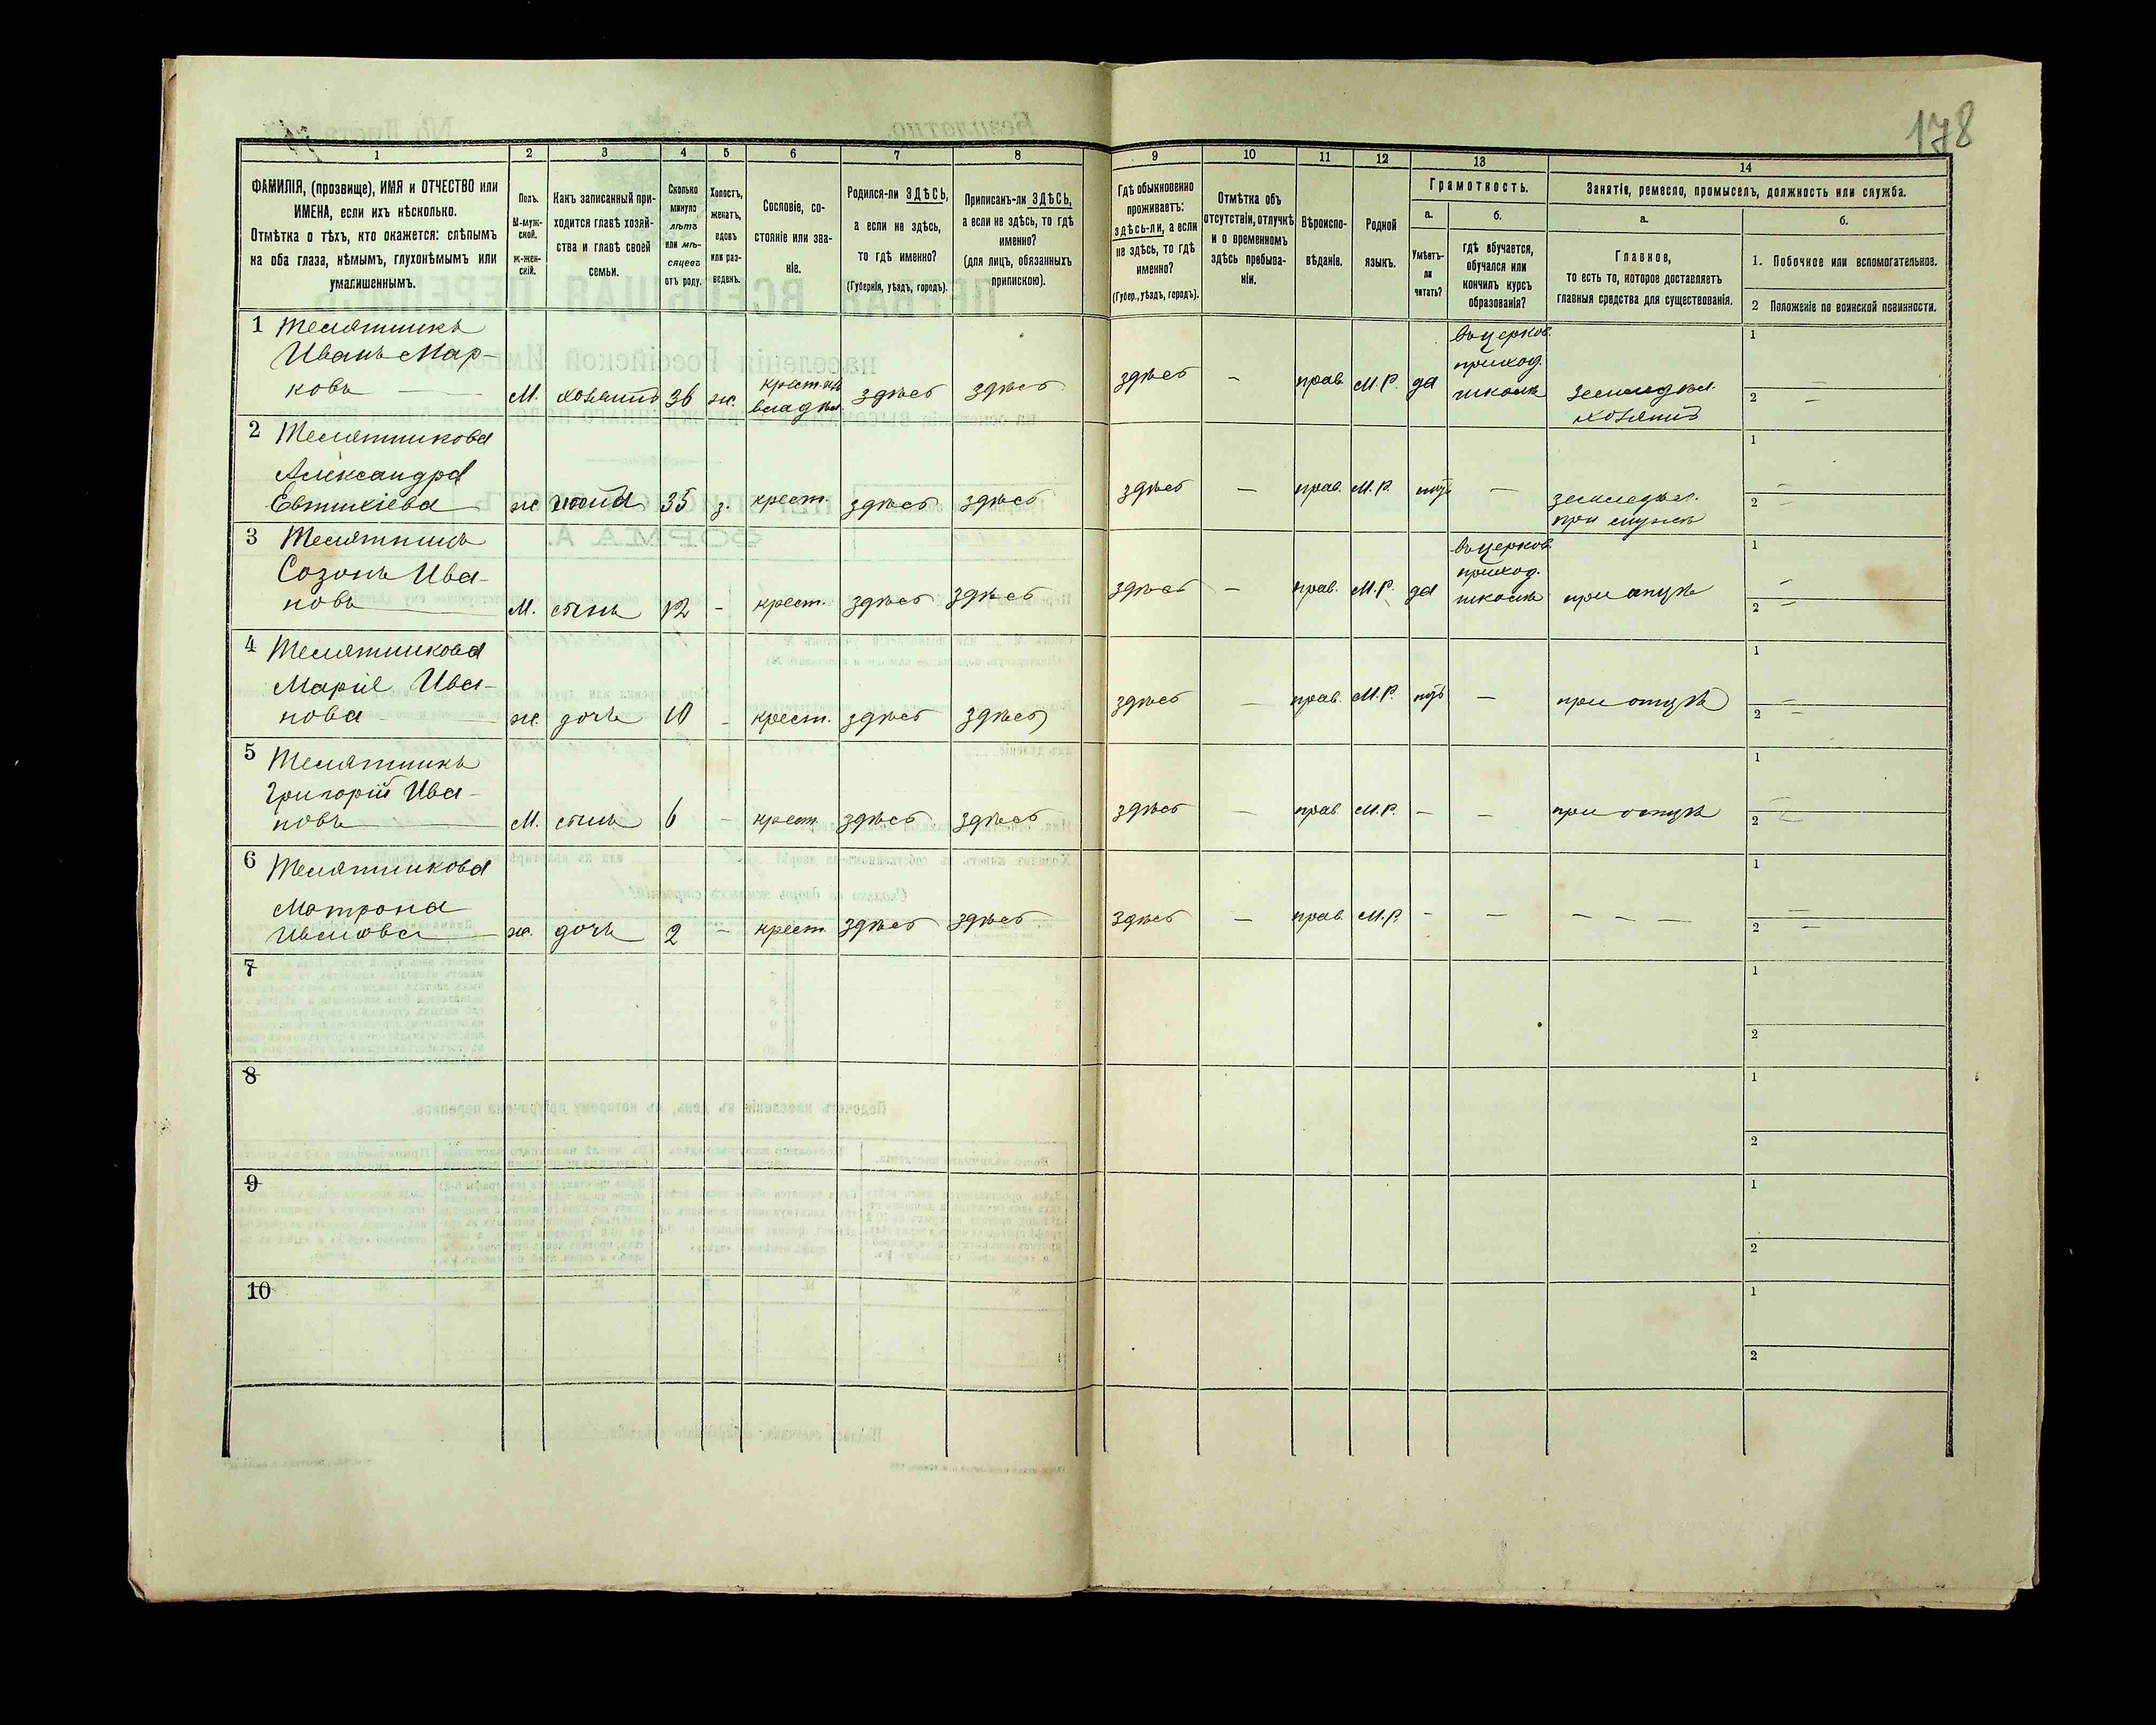 178
1
2
3
4
5
6
7
8
9
10
11
12
13
14
ФАМИЛІЯ, (прозвище), ИМЯ и ОТЧЕСТВО или
ИМЕНА, если ихъ нѣсколько.
Отмѣтка о тѣхъ, кто окажется: слѣпымъ
на оба глаза, нѣмымъ, глухонѣмымъ или
умалишеннымъ.
Полъ.
М-муж-
ской.
ж-жен-
скій.
Какъ записанный при-
ходится главѣ хозяй-
ства и главѣ своей
семьи.
Сколько
минуло
лѣтъ
или мѣ-
сяцевъ
отъ роду.
Холостъ,
женатъ,
вдовъ
или раз-
веденъ.
Сословіе, со-
стояніе или зва-
ніе.
Родился-ли ЗДѢСЬ,
а если не здѣсь,
то гдѣ именно?
(Губернія, уѣздъ, городъ).
Приписанъ-ли ЗДѢСЬ,
а если не здѣсь, то гдѣ
именно?
(для лицъ, обязанныхъ
припискою).
Гдѣ обыкновенно
проживаетъ:
здѣсь-ли, а если
не здѣсь, то гдѣ
именно?
(Губер., уѣздъ, городъ).
Отмѣтка объ
отсутствіи, отлучкѣ
и о временномъ
здѣсь пребыва-
ніи.
Вѣроиспо-
вѣданіе.
Родной
языкъ.
Грамотность.
а.
Умѣетъ-
ли
читать?
б.
гдѣ обучается,
обучался или
кончилъ курсъ
образованія?
Занятіе, ремесло, промыселъ, должность или служба.
а.
Главное,
то есть то, которое доставляетъ
главныя средства для существованія.
б.
1. Побочное или вспомогательное.
2 Положеніе по воинской повинности.
1 Телятникъ
Иванъ Мар-
ковъ — М. хозяинъ 36 ж. крест. влад здѣсь здѣсь здѣсь — прав. М.Р. да въ церков. приход. школѣ земледѣл. хозяинъ 1 — 2 —
2 Телятникова
Александра
Евтихіева ж жена 35 з. крест. здѣсь здѣсь здѣсь — прав. М.Р. нѣтъ — земледѣл. при мужѣ 1 — 2 —
3 Телятникъ
Созонъ Ива-
новъ М. сынъ 12 - крест. здѣсь здѣсь здѣсь — прав. М.Р. да въ церков. приход. школѣ при отцѣ 1 — 2 —
4 Телятникова
Марія Ива-
нова ж. дочь 10 - крест. здѣсь здѣсь здѣсь — прав. М.Р. нѣтъ — при отцѣ 1 — 2 —
5 Телятникъ
Григорій Ива-
новъ М. сынъ 6 - крест. здѣсь здѣсь здѣсь — прав. М.Р. — — при отцѣ 1 — 2 —
6 Телятникова
Матрона
Иванова ж. дочь 2 — крест. здѣсь здѣсь здѣсь — прав. М.Р. - — — — — 1 — 2 —
7 1 2
8 1 2
9 1 2
10 1 2